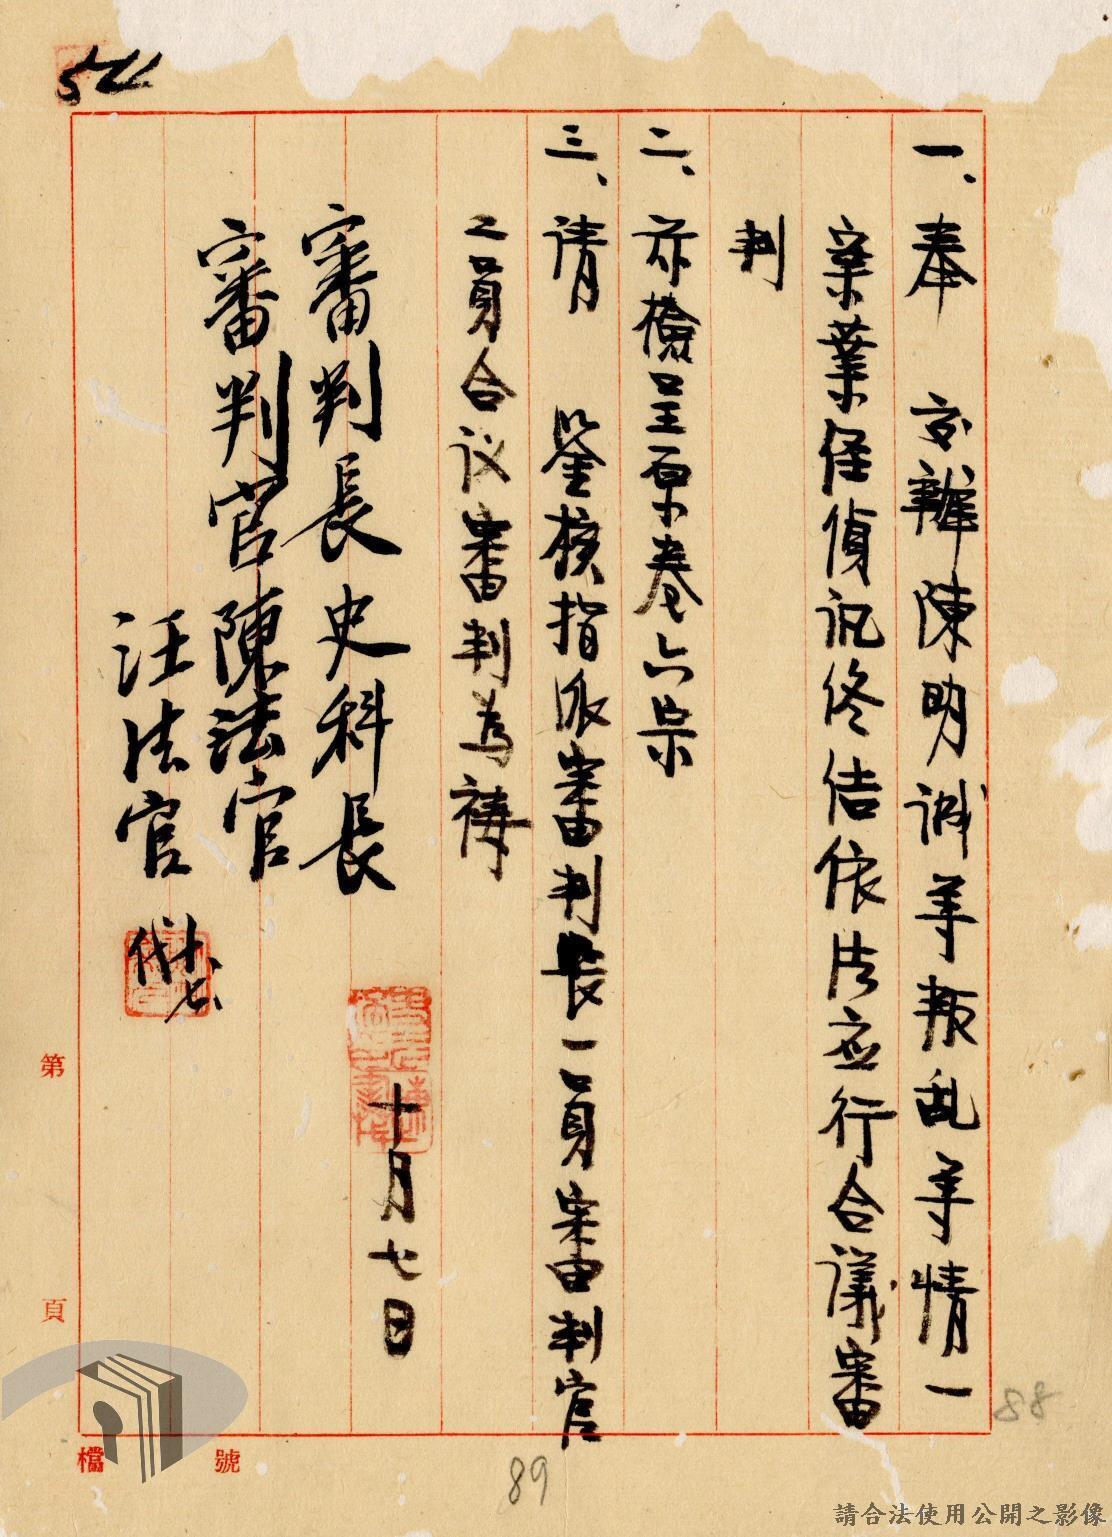 一、奉 交辦陳明诚等叛乱等情一
案業經偵讯终结依法应行合議審
判
二、亦檢呈原卷六宗
三、请 鉴核指派審判長一員審判官
二員合议審判為禱
審判長史科長
審判官陳法官
汪法官
十月七日
第
頁
檔
號
88
89
請合法使用公開之影像